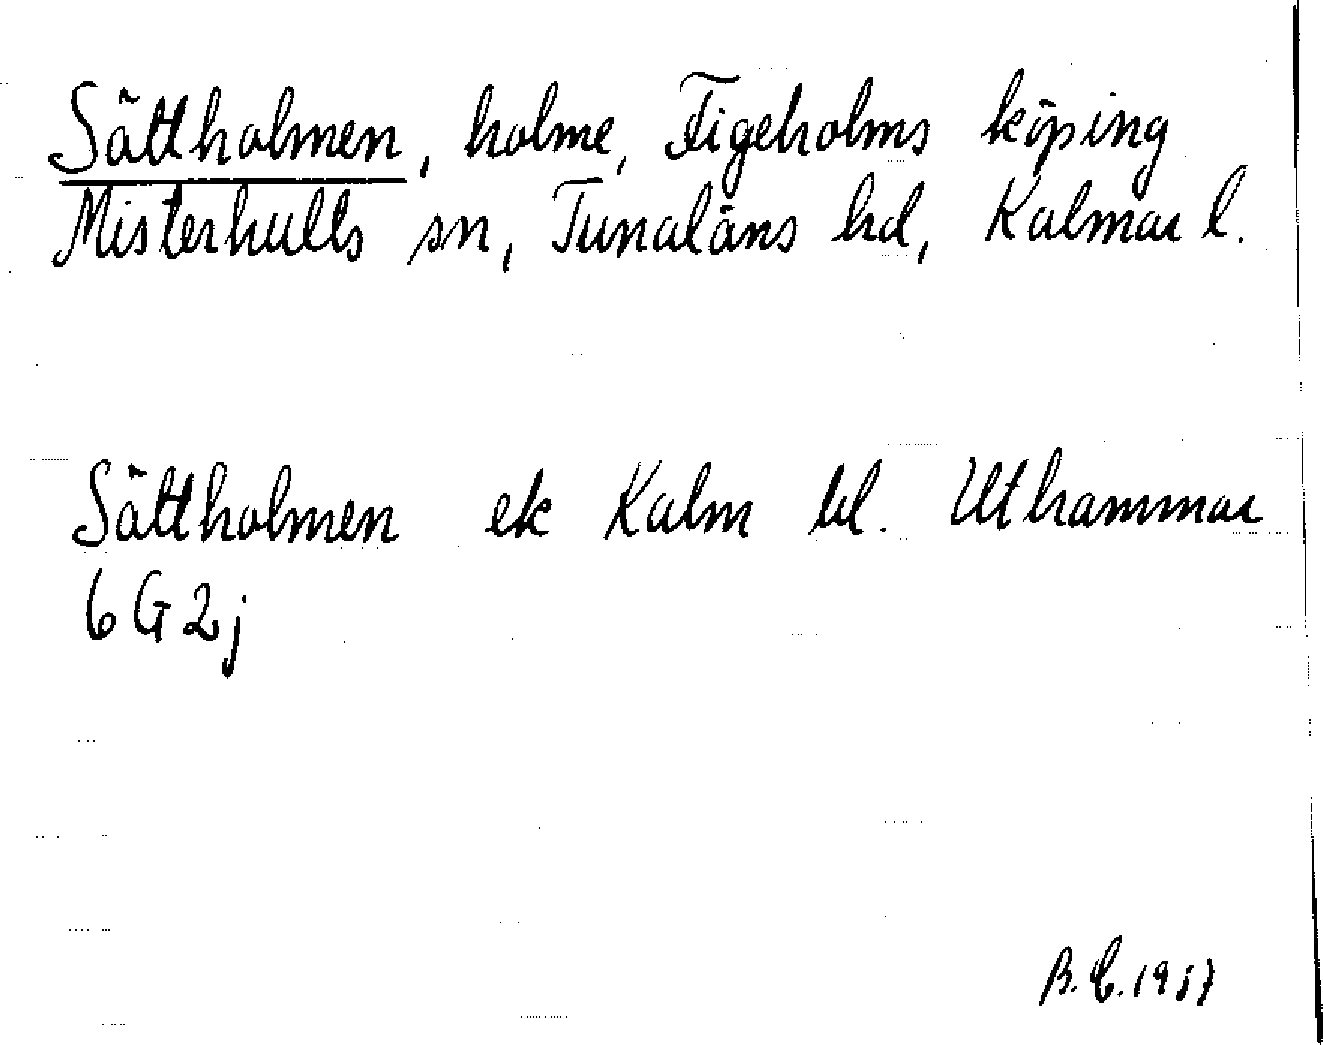 Sättholmen, holme, Figeholms köping
Misterhults sn, Tunaläns hd, Kalmar l.
Sättholmen ek Kalm bl. Uthammar
6G2j
B.E. 1957